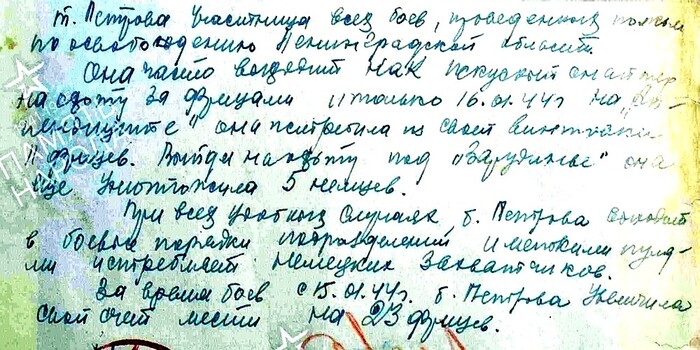 т. Петрова участница всех боев, проведенных полком
по освобождению Ленинградской области.
Она часто выходит как искусный снайпер
на охоту за фрицами и только 16.01.44г на
она истребила из своей винтовки
11 фрицев. Выйдя на охоту под "Зарудинье" она
еще уничтожила 5 немцев.
При всех удобных случаях, т. Петрова выходит
в боевые порядки подразделений и меткими пуля-
ми истребляет немецких захватчиков.
За время боев с 15.01.44г. т. Петрова увеличила
свой счет мести на 23 фрицев.
ПАМЯТЬ
НАРОДА